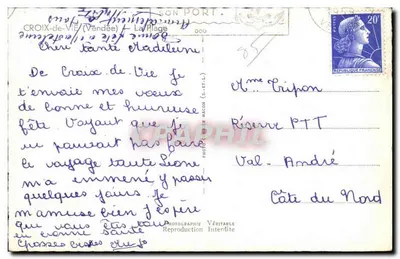 SON PORT
CROIX-de-VIE (Vendée) - La Plage
Bonne fête Madeleine
Chère tante Madeleine
De Croix de Vie je
t'envoie mes vœux
de bonne et heureuse
fête. Voyant que je
ne pouvait pas faire
le voyage tante
m'a emmené y passer
quelques jours. Je
m'amuse bien j'espère
que vous êtes tous
en bonne santé
Grosses bises
20F
REPUBLIQUE FRANÇAISE
Mme Tripon
Réserve PTT
Val-André
Côte du Nord
Reproduction Interdite